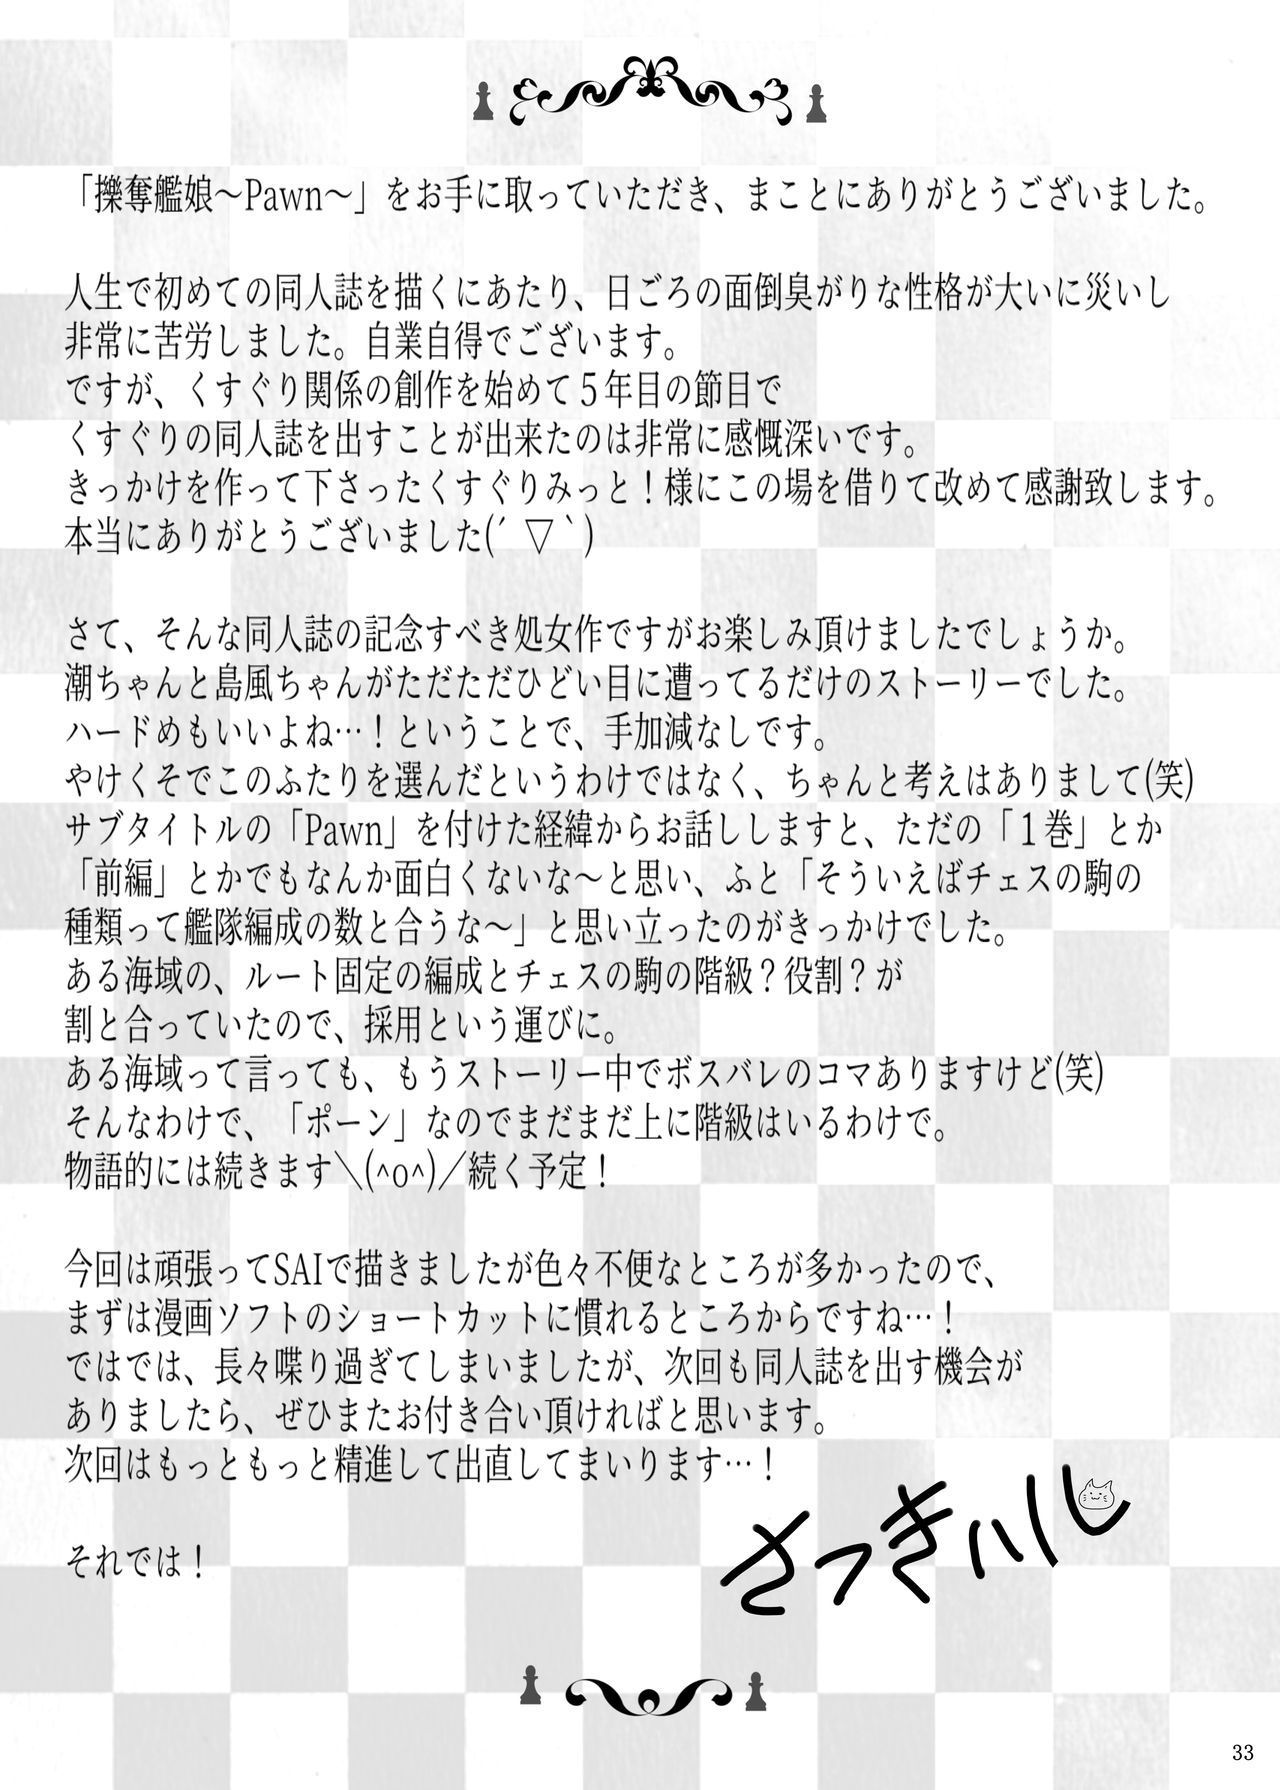 「擽奪艦娘～Pawn～」をお手に取っていただき、まことにありがとうございました。
人生で初めての同人誌を描くにあたり、日ごろの面倒臭がりな性格が大いに災いし
非常に苦労しました。自業自得でございます。
ですが、くすぐり関係の創作を始めて５年目の節目で
くすぐりの同人誌を出すことが出来たのは非常に感慨深いです。
きっかけを作って下さったくすぐりみっと！様にこの場を借りて改めて感謝致します。
本当にありがとうございました(´▽｀)
さて、そんな同人誌の記念すべき処女作ですがお楽しみ頂けましたでしょうか。
潮ちゃんと島風ちゃんがただただひどい目に遭ってるだけのストーリーでした。
ハードめもいいよね…！ということで、手加減なしです。
やけくそでこのふたりを選んだというわけではなく、ちゃんと考えはありまして(笑)
サブタイトルの「Pawn」を付けた経緯からお話ししますと、ただの「１巻」とか
「前編」とかでもなんか面白くないな～と思い、ふと「そういえばチェスの駒の
種類って艦隊編成の数と合うな～」と思い立ったのがきっかけでした。
ある海域の、ルート固定の編成とチェスの駒の階級？役割？が
割と合っていたので、採用という運びに。
ある海域って言っても、もうストーリー中でボスバレのコマありますけど(笑)
そんなわけで、「ポーン」なのでまだまだ上に階級はいるわけで。
物語的には続きます＼(^o^)／続く予定！
今回は頑張ってSAIで描きましたが色々不便なところが多かったので、
まずは漫画ソフトのショートカットに慣れるところからですね…！
ではでは、長々喋り過ぎてしまいましたが、次回も同人誌を出す機会が
ありましたら、ぜひまたお付き合い頂ければと思います。
次回はもっともっと精進して出直してまいります…！
それでは！
さつきハル
33